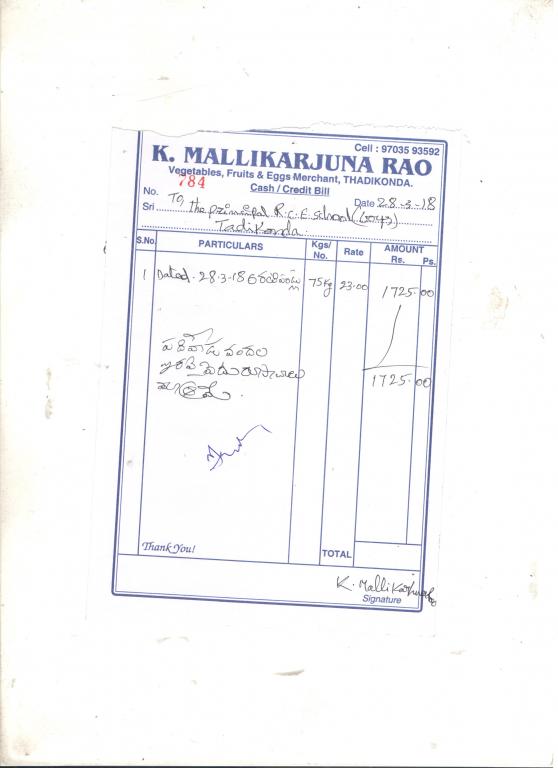 Cell : 97035 93592
K. MALLIKARJUNA RAO
Vegetables, Fruits & Eggs Merchant, THADIKONDA.
No. 784
Cash / Credit Bill
Date 28-3-18
Sri To the principal R.C.E. School (Boys)
Tadikonda
S.No. PARTICULARS Kgs/No. Rate AMOUNT Rs. Ps.
1 Dated. 28.3-18 75kg 23.00 1725.00
పదిహేడు వందల
ఇరవై ఐదు రూపాయలు
మాత్రమే.
1725.00
Thank You!
TOTAL
K. Mallikarjunarao
Signature